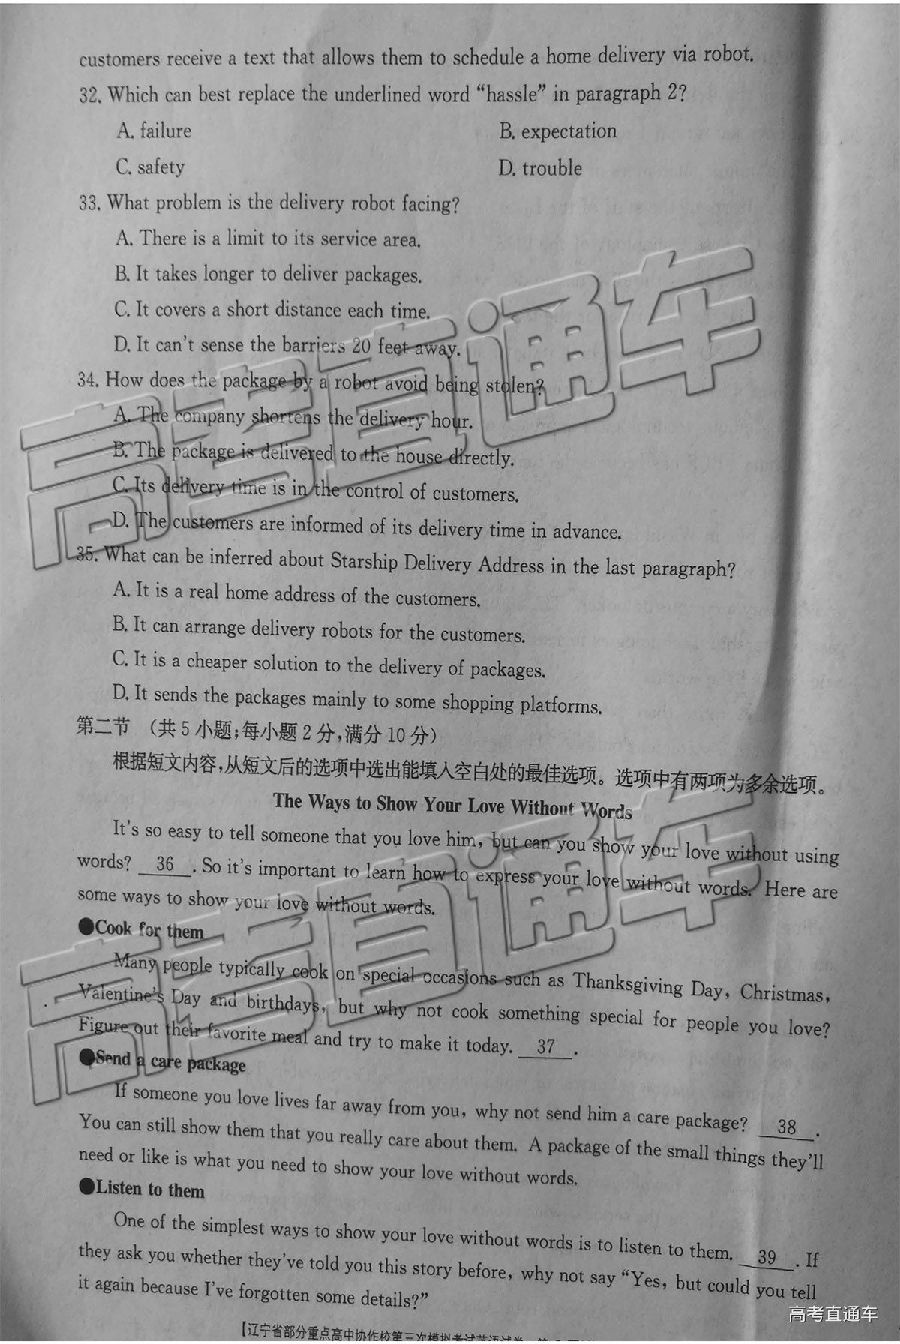 customers receive a text that allows them to schedule a home delivery via robot.
32. Which can best replace the underlined word “hassle” in paragraph 2?
A. failure B. expectation
C. safety D. trouble
33. What problem is the delivery robot facing?
A. There is a limit to its service area.
B. It takes longer to deliver packages.
C. It covers a short distance each time.
D. It can't sense the barriers 20 feet away.
34. How does the package by a robot avoid being stolen?
A. The company shortens the delivery hour.
B. The package is delivered to the house directly.
C. Its delivery time is in the control of customers.
D. The customers are informed of its delivery time in advance.
35. What can be inferred about Starship Delivery Address in the last paragraph?
A. It is a real home address of the customers.
B. It can arrange delivery robots for the customers.
C. It is a cheaper solution to the delivery of packages.
D. It sends the packages mainly to some shopping platforms.
第二节 (共5小题;每小题2分,满分10分)
根据短文内容,从短文后的选项中选出能填入空白处的最佳选项。选项中有两项为多余选项。
The Ways to Show Your Love Without Words
It's so easy to tell someone that you love him, but can you show your love without using
words? 36 . So it's important to learn how to express your love without words. Here are
some ways to show your love without words.
●Cook for them
Many people typically cook on special occasions such as Thanksgiving Day, Christmas,
Valentine's Day and birthdays, but why not cook something special for people you love?
Figure out their favorite meal and try to make it today. 37 .
●Send a care package
If someone you love lives far away from you, why not send him a care package? 38 .
You can still show them that you really care about them. A package of the small things they'll
need or like is what you need to show your love without words.
●Listen to them
One of the simplest ways to show your love without words is to listen to them. 39 . If
they ask you whether they've told you this story before, why not say “Yes, but could you tell
it again because I've forgotten some details?”
【辽宁省部分重点高中协作校第三次模拟考试英语试卷
高考直通车
高考直通车
高考直通车